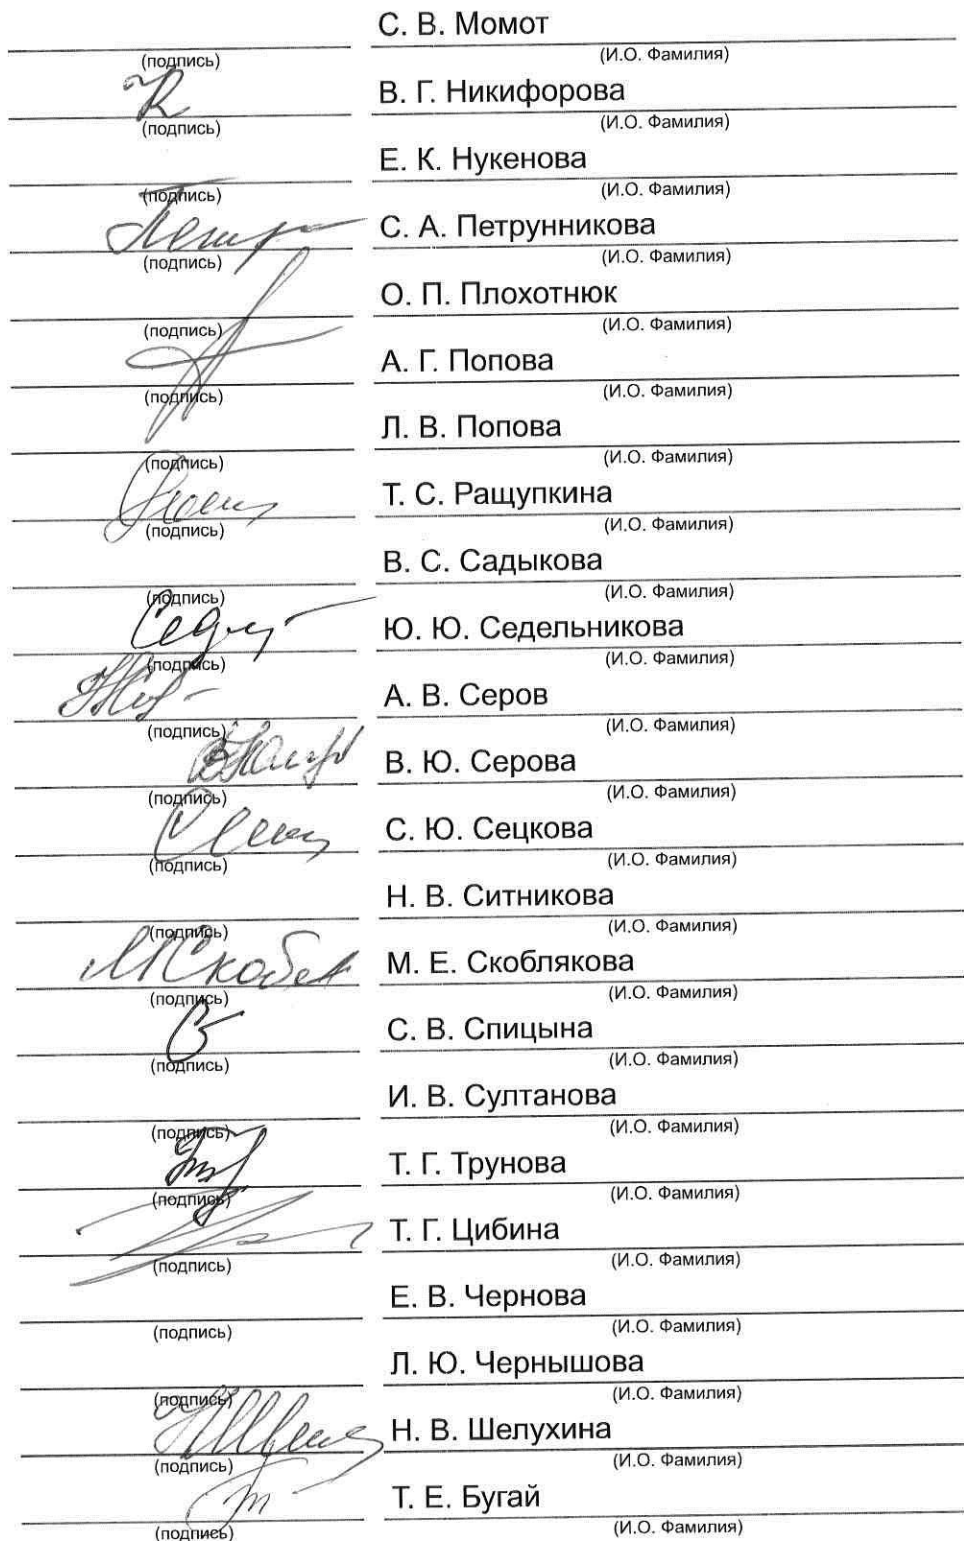 С. В. Момот
(подпись) (И.О. Фамилия)
В. Г. Никифорова
(подпись) (И.О. Фамилия)
Е. К. Нукенова
(подпись) (И.О. Фамилия)
С. А. Петрунникова
(подпись) (И.О. Фамилия)
О. П. Плохотнюк
(подпись) (И.О. Фамилия)
А. Г. Попова
(подпись) (И.О. Фамилия)
Л. В. Попова
(подпись) (И.О. Фамилия)
Т. С. Ращупкина
(подпись) (И.О. Фамилия)
В. С. Садыкова
(подпись) (И.О. Фамилия)
Ю. Ю. Седельникова
(подпись) (И.О. Фамилия)
А. В. Серов
(подпись) (И.О. Фамилия)
В. Ю. Серова
(подпись) (И.О. Фамилия)
С. Ю. Сецкова
(подпись) (И.О. Фамилия)
Н. В. Ситникова
(подпись) (И.О. Фамилия)
М. Е. Скоблякова
(подпись) (И.О. Фамилия)
С. В. Спицына
(подпись) (И.О. Фамилия)
И. В. Султанова
(подпись) (И.О. Фамилия)
Т. Г. Трунова
(подпись) (И.О. Фамилия)
Т. Г. Цибина
(подпись) (И.О. Фамилия)
Е. В. Чернова
(подпись) (И.О. Фамилия)
Л. Ю. Чернышова
(подпись) (И.О. Фамилия)
Н. В. Шелухина
(подпись) (И.О. Фамилия)
Т. Е. Бугай
(подпись) (И.О. Фамилия)